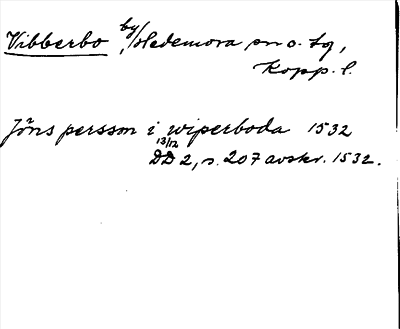 Vibberbo by, Hedemora sn o. tg,
Kopp. l.
Jöns persson i wiperboda 1532
13/12
DD 2, s. 207 avskr. 1532.